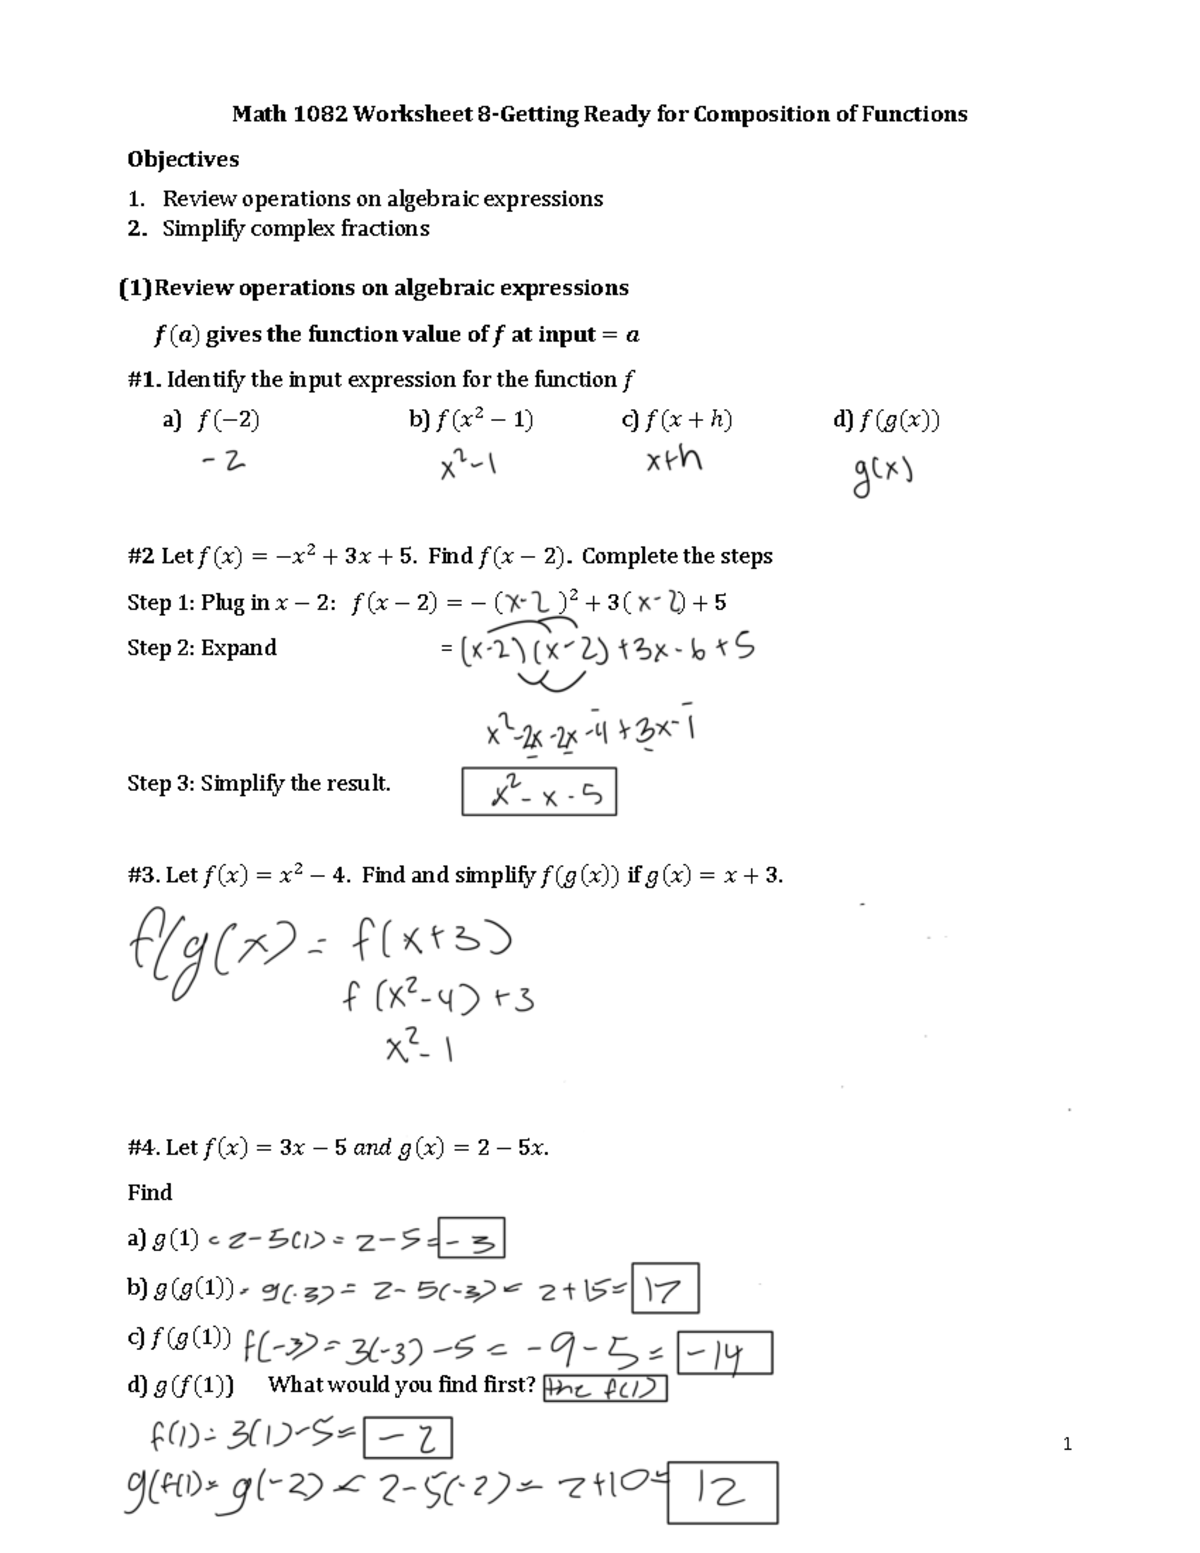 Math 1082 Worksheet 8-Getting Ready for Composition of Functions
Objectives
1. Review operations on algebraic expressions
2. Simplify complex fractions
(1)Review operations on algebraic expressions
f(a) gives the function value of f at input = a
#1. Identify the input expression for the function f
a) f(−2) b) f(x² − 1) c) f(x + h) d) f(g(x))
-2 x²-1 x+h g(x)
#2 Let f(x) = −x² + 3x + 5. Find f(x − 2). Complete the steps
Step 1: Plug in x − 2: f(x − 2) = − (x-2)² + 3(x-2) + 5
Step 2: Expand = (x-2)(x-2)+3x-6+5
x²-2x-2x-4+3x-1
Step 3: Simplify the result. x²-x-5
#3. Let f(x) = x² − 4. Find and simplify f(g(x)) if g(x) = x + 3.
f(g(x) = f(x+3)
f(x²-4)+3
x²-1
#4. Let f(x) = 3x − 5 and g(x) = 2 − 5x.
Find
a) g(1) = 2-5(1) = 2-5 = -3
b) g(g(1)) = g(-3) = 2-5(-3) = 2+15 = 17
c) f(g(1)) f(-3) = 3(-3)-5 = -9-5 = -14
d) g(f(1)) What would you find first? the f(1)
f(1) = 3(1)-5 = -2
g(f(1) = g(-2) = 2-5(-2) = 2+10 = 12
1